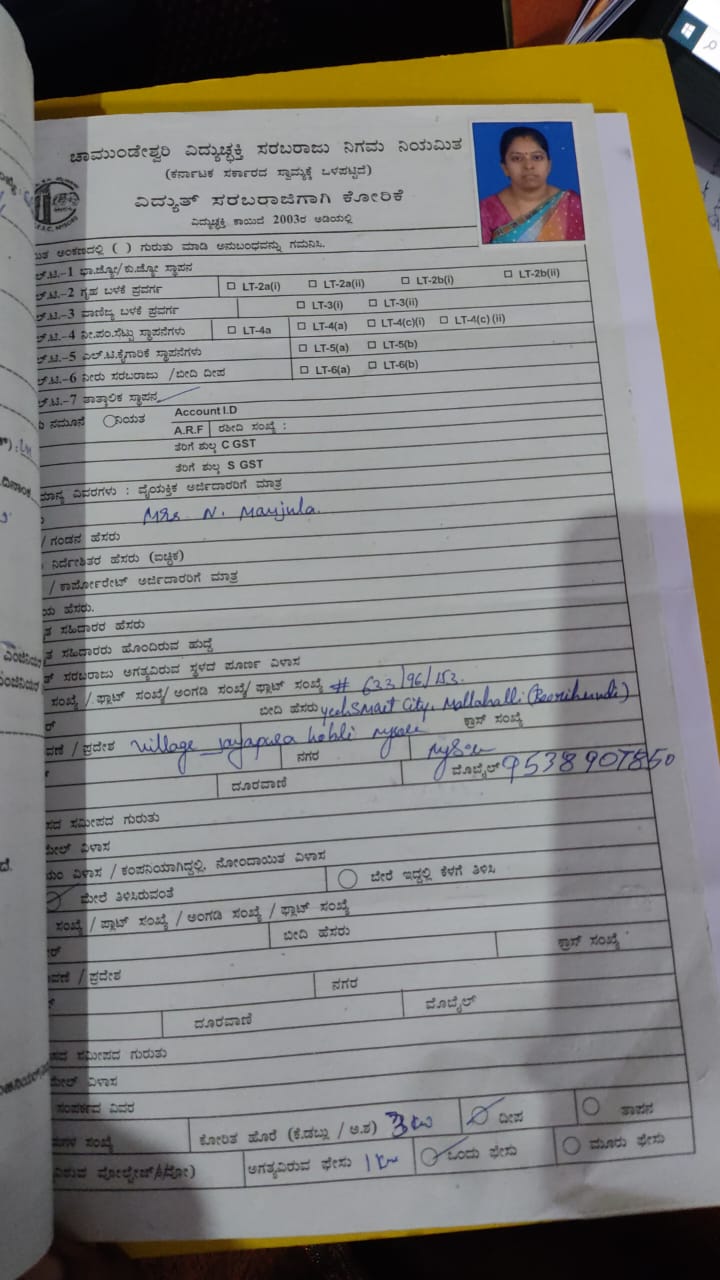 ಚಾಮುಂಡೇಶ್ವರಿ ವಿದ್ಯುಚ್ಛಕ್ತಿ ಸರಬರಾಜು ನಿಗಮ ನಿಯಮಿತ
(ಕರ್ನಾಟಕ ಸರ್ಕಾರದ ಸ್ವಾಮ್ಯಕ್ಕೆ ಒಳಪಟ್ಟಿದೆ)
ವಿದ್ಯುತ್ ಸರಬರಾಜಿಗಾಗಿ ಕೋರಿಕೆ
ವಿದ್ಯುಚ್ಛಕ್ತಿ ಕಾಯಿದೆ 2003ರ ಅಡಿಯಲ್ಲಿ
ಅಂಕಣದಲ್ಲಿ ( ) ಗುರುತು ಮಾಡಿ ಅನುಬಂಧವನ್ನು ಗಮನಿಸಿ.
ಲ್.ಟಿ.-1 ಭಾ.ಜ್ಯೋ/ಕು.ಜ್ಯೋ ಸ್ಥಾಪನ
ಲ್.ಟಿ.-2 ಗೃಹ ಬಳಕೆ ಪ್ರವರ್ಗ □ LT-2a(i) □ LT-2a(ii) □ LT-2b(i) □ LT-2b(ii)
ಲ್.ಟಿ.-3 ವಾಣಿಜ್ಯ ಬಳಕೆ ಪ್ರವರ್ಗ □ LT-3(i) □ LT-3(ii)
ಲ್.ಟಿ.-4 ನೀ.ಪಂ.ಸೆಟ್ಟು ಸ್ಥಾಪನೆಗಳು □ LT-4a □ LT-4(a) □ LT-4(c)(i) □ LT-4(c) (ii)
ಲ್.ಟಿ.-5 ಎಲ್.ಟಿ.ಕೈಗಾರಿಕೆ ಸ್ಥಾಪನೆಗಳು □ LT-5(a) □ LT-5(b)
ಲ್.ಟಿ.-6 ನೀರು ಸರಬರಾಜು /ಬೀದಿ ದೀಪ □ LT-6(a) □ LT-6(b)
ಲ್.ಟಿ.-7 ತಾತ್ಕಾಲಿಕ ಸ್ಥಾಪನ
ನಮೂನೆ ನಿಯತ Account I.D
A.R.F ರಶೀದಿ ಸಂಖ್ಯೆ :
ತೆರಿಗೆ ಶುಲ್ಕ C GST
ತೆರಿಗೆ ಶುಲ್ಕ S GST
ಮಾನ್ಯ ವಿವರಗಳು : ವೈಯಕ್ತಿಕ ಅರ್ಜಿದಾರರಿಗೆ ಮಾತ್ರ
Mrs. N. Manjula.
/ ಗಂಡನ ಹೆಸರು
ನಿರ್ದೇಶಿತರ ಹೆಸರು (ಐಚ್ಛಿಕ)
/ ಕಾರ್ಪೋರೇಟ್ ಅರ್ಜಿದಾರರಿಗೆ ಮಾತ್ರ
ಯ ಹೆಸರು.
ತ ಸಹಿದಾರರ ಹೆಸರು
ತ ಸಹಿದಾರರು ಹೊಂದಿರುವ ಹುದ್ದೆ
ತ್ ಸರಬರಾಜು ಅಗತ್ಯವಿರುವ ಸ್ಥಳದ ಪೂರ್ಣ ವಿಳಾಸ
ಸಂಖ್ಯೆ / ಫ್ಲಾಟ್ ಸಂಖ್ಯೆ/ ಅಂಗಡಿ ಸಂಖ್ಯೆ/ ಫ್ಲಾಟ್ ಸಂಖ್ಯೆ # 633/96/153.
ರ್ ಬೀದಿ ಹೆಸರು Smart City, Mallahalli
ವಣೆ / ಪ್ರದೇಶ village Jayapura hobli mysore ಕ್ರಾಸ್ ಸಂಖ್ಯೆ
ನಗರ Mysore
ದೂರವಾಣಿ ಮೊಬೈಲ್ 9538907850
ಸದ ಸಮೀಪದ ಗುರುತು
ಮೇಲ್ ವಿಳಾಸ
ಯಂ ವಿಳಾಸ / ಕಂಪನಿಯಾಗಿದ್ದಲ್ಲಿ, ನೋಂದಾಯಿತ ವಿಳಾಸ
ಮೇಲೆ ತಿಳಿಸಿರುವಂತೆ ಬೇರೆ ಇದ್ದಲ್ಲಿ ಕೆಳಗೆ ತಿಳಿಸಿ
ಸಂಖ್ಯೆ / ಪ್ಲಾಟ್ ಸಂಖ್ಯೆ / ಅಂಗಡಿ ಸಂಖ್ಯೆ / ಫ್ಲಾಟ್ ಸಂಖ್ಯೆ
ರ್ ಬೀದಿ ಹೆಸರು
ವಣೆ / ಪ್ರದೇಶ ಕ್ರಾಸ್ ಸಂಖ್ಯೆ
ನಗರ
ದೂರವಾಣಿ ಮೊಬೈಲ್
ಸದ ಸಮೀಪದ ಗುರುತು
ಮೇಲ್ ವಿಳಾಸ
ಸಂಪರ್ಕದ ವಿವರ
ಗಳ ಸಂಖ್ಯೆ ಕೋರಿತ ಹೊರೆ (ಕೆ.ಡಬ್ಲು / ಅ.ಶ) 3 kw ದೀಪ ತಾಪನ
ಅಗತ್ಯವಿರುವ ಫೇಸು ಒಂದು ಫೇಸು ಮೂರು ಫೇಸು